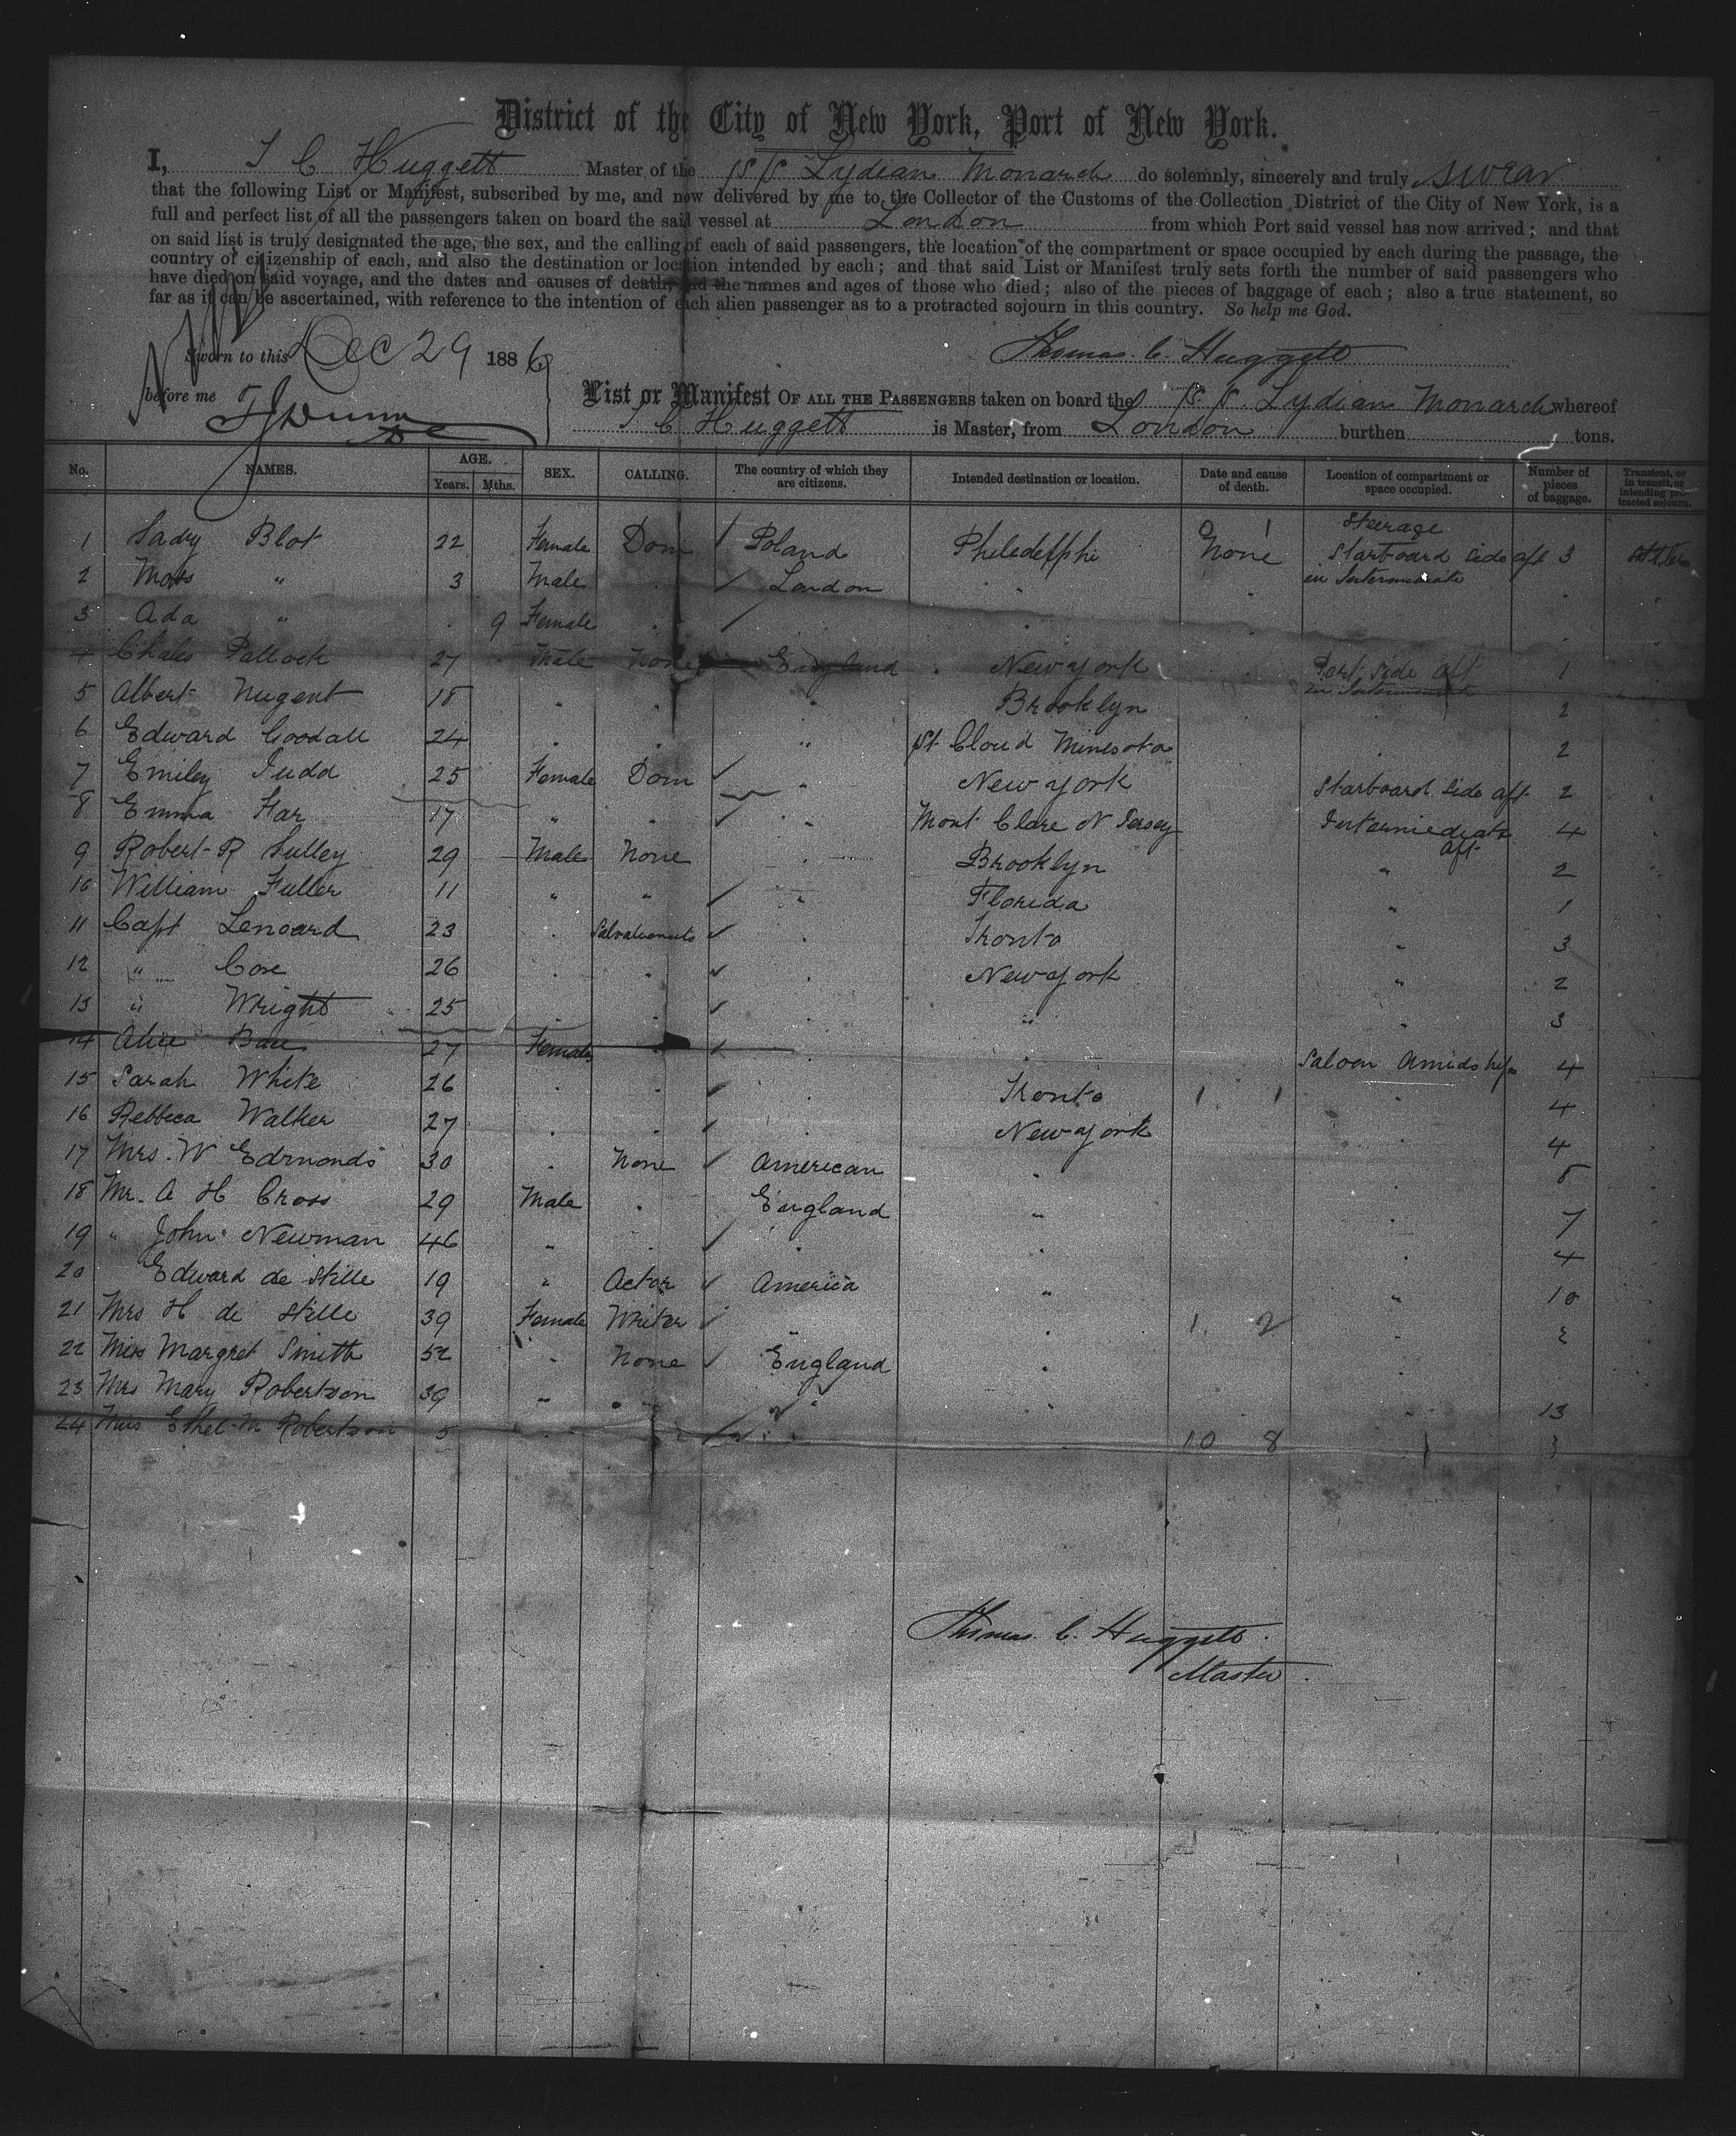 District of the City of New York, Port of New York.
I, T C Huggett Master of the S.S. Lydian Monarch do solemnly, sincerely and truly swear
that the following List or Manifest, subscribed by me, and now delivered by me to the Collector of the Customs of the Collection District of the City of New York, is a
full and perfect list of all the passengers taken on board the said vessel at London from which Port said vessel has now arrived; and that
on said list is truly designated the age, the sex, and the calling of each of said passengers, the location of the compartment or space occupied by each during the passage, the
country of citizenship of each, and also the destination or location intended by each; and that said List or Manifest truly sets forth the number of said passengers who
have died on said voyage, and the dates and causes of death, and the names and ages of those who died; also of the pieces of baggage of each; also a true statement, so
far as it can be ascertained, with reference to the intention of each alien passenger as to a protracted sojourn in this country. So help me God.
Sworn to this Dec 29 1886 Thomas C. Huggett
before me
List or Manifest OF ALL THE PASSENGERS taken on board the S.S. Lydian Monarch whereof
T C Huggett is Master, from London burthen tons.
No. NAMES. AGE. Years. Mths. SEX. CALLING. The country of which they are citizens. Intended destination or location. Date and cause of death. Location of compartment or space occupied. Number of pieces of baggage. Transient, or in transit, or intending protracted sojourn.
Steerage
1 Sadry Blot 22 Female Dom Poland Pheledelfhi None Starboard Side aft 3
in Intermediate
2 Moss " 3 Male London
3 Ada " 9 Female
4 Chales Pallock 27 Male None England New york Port Side aft 1
in Intermediate
5 Albert Nugent 18 " " " Brooklyn 2
6 Edward Goodall 24 " " " St. Cloud Minesota 2
7 Emiley Judd 25 Female Dom " New york Starboard Side aft 2
8 Emma Far 17 " " " Mont Clare N Jersey Intermediate aft 4
9 Robert R Sulley 29 Male None " Brooklyn " 2
10 William Fuller 11 " " " Florida " 1
11 Capt Lenoard 23 " Salvationists " Tronto " 3
12 " Cox 26 " " " New york " 2
13 " Wright 25 " " " " " 3
14 Alice 27 Female " " " Saloon Amidships 4
15 Sarah White 26 " " " Tronto 1 1 " 4
16 Rebbeca Walker 27 " " " New york " 4
17 Mrs. W Edmonds 30 " None American " " 8
18 Mr. A H Cross 29 Male " England " " 7
19 " John Newman 46 " " " " " 4
20 Edward de Stille 19 " Actor America " " 10
21 Mrs H de Stille 39 Female Writer " " 1. 2 "
22 Miss Margret Smith 52 " None England "
23 Mrs Mary Robertson 39 " " " " " 13
24 Miss Ethel M Robertson 5 " " 10 8
Thomas C. Huggett
Master